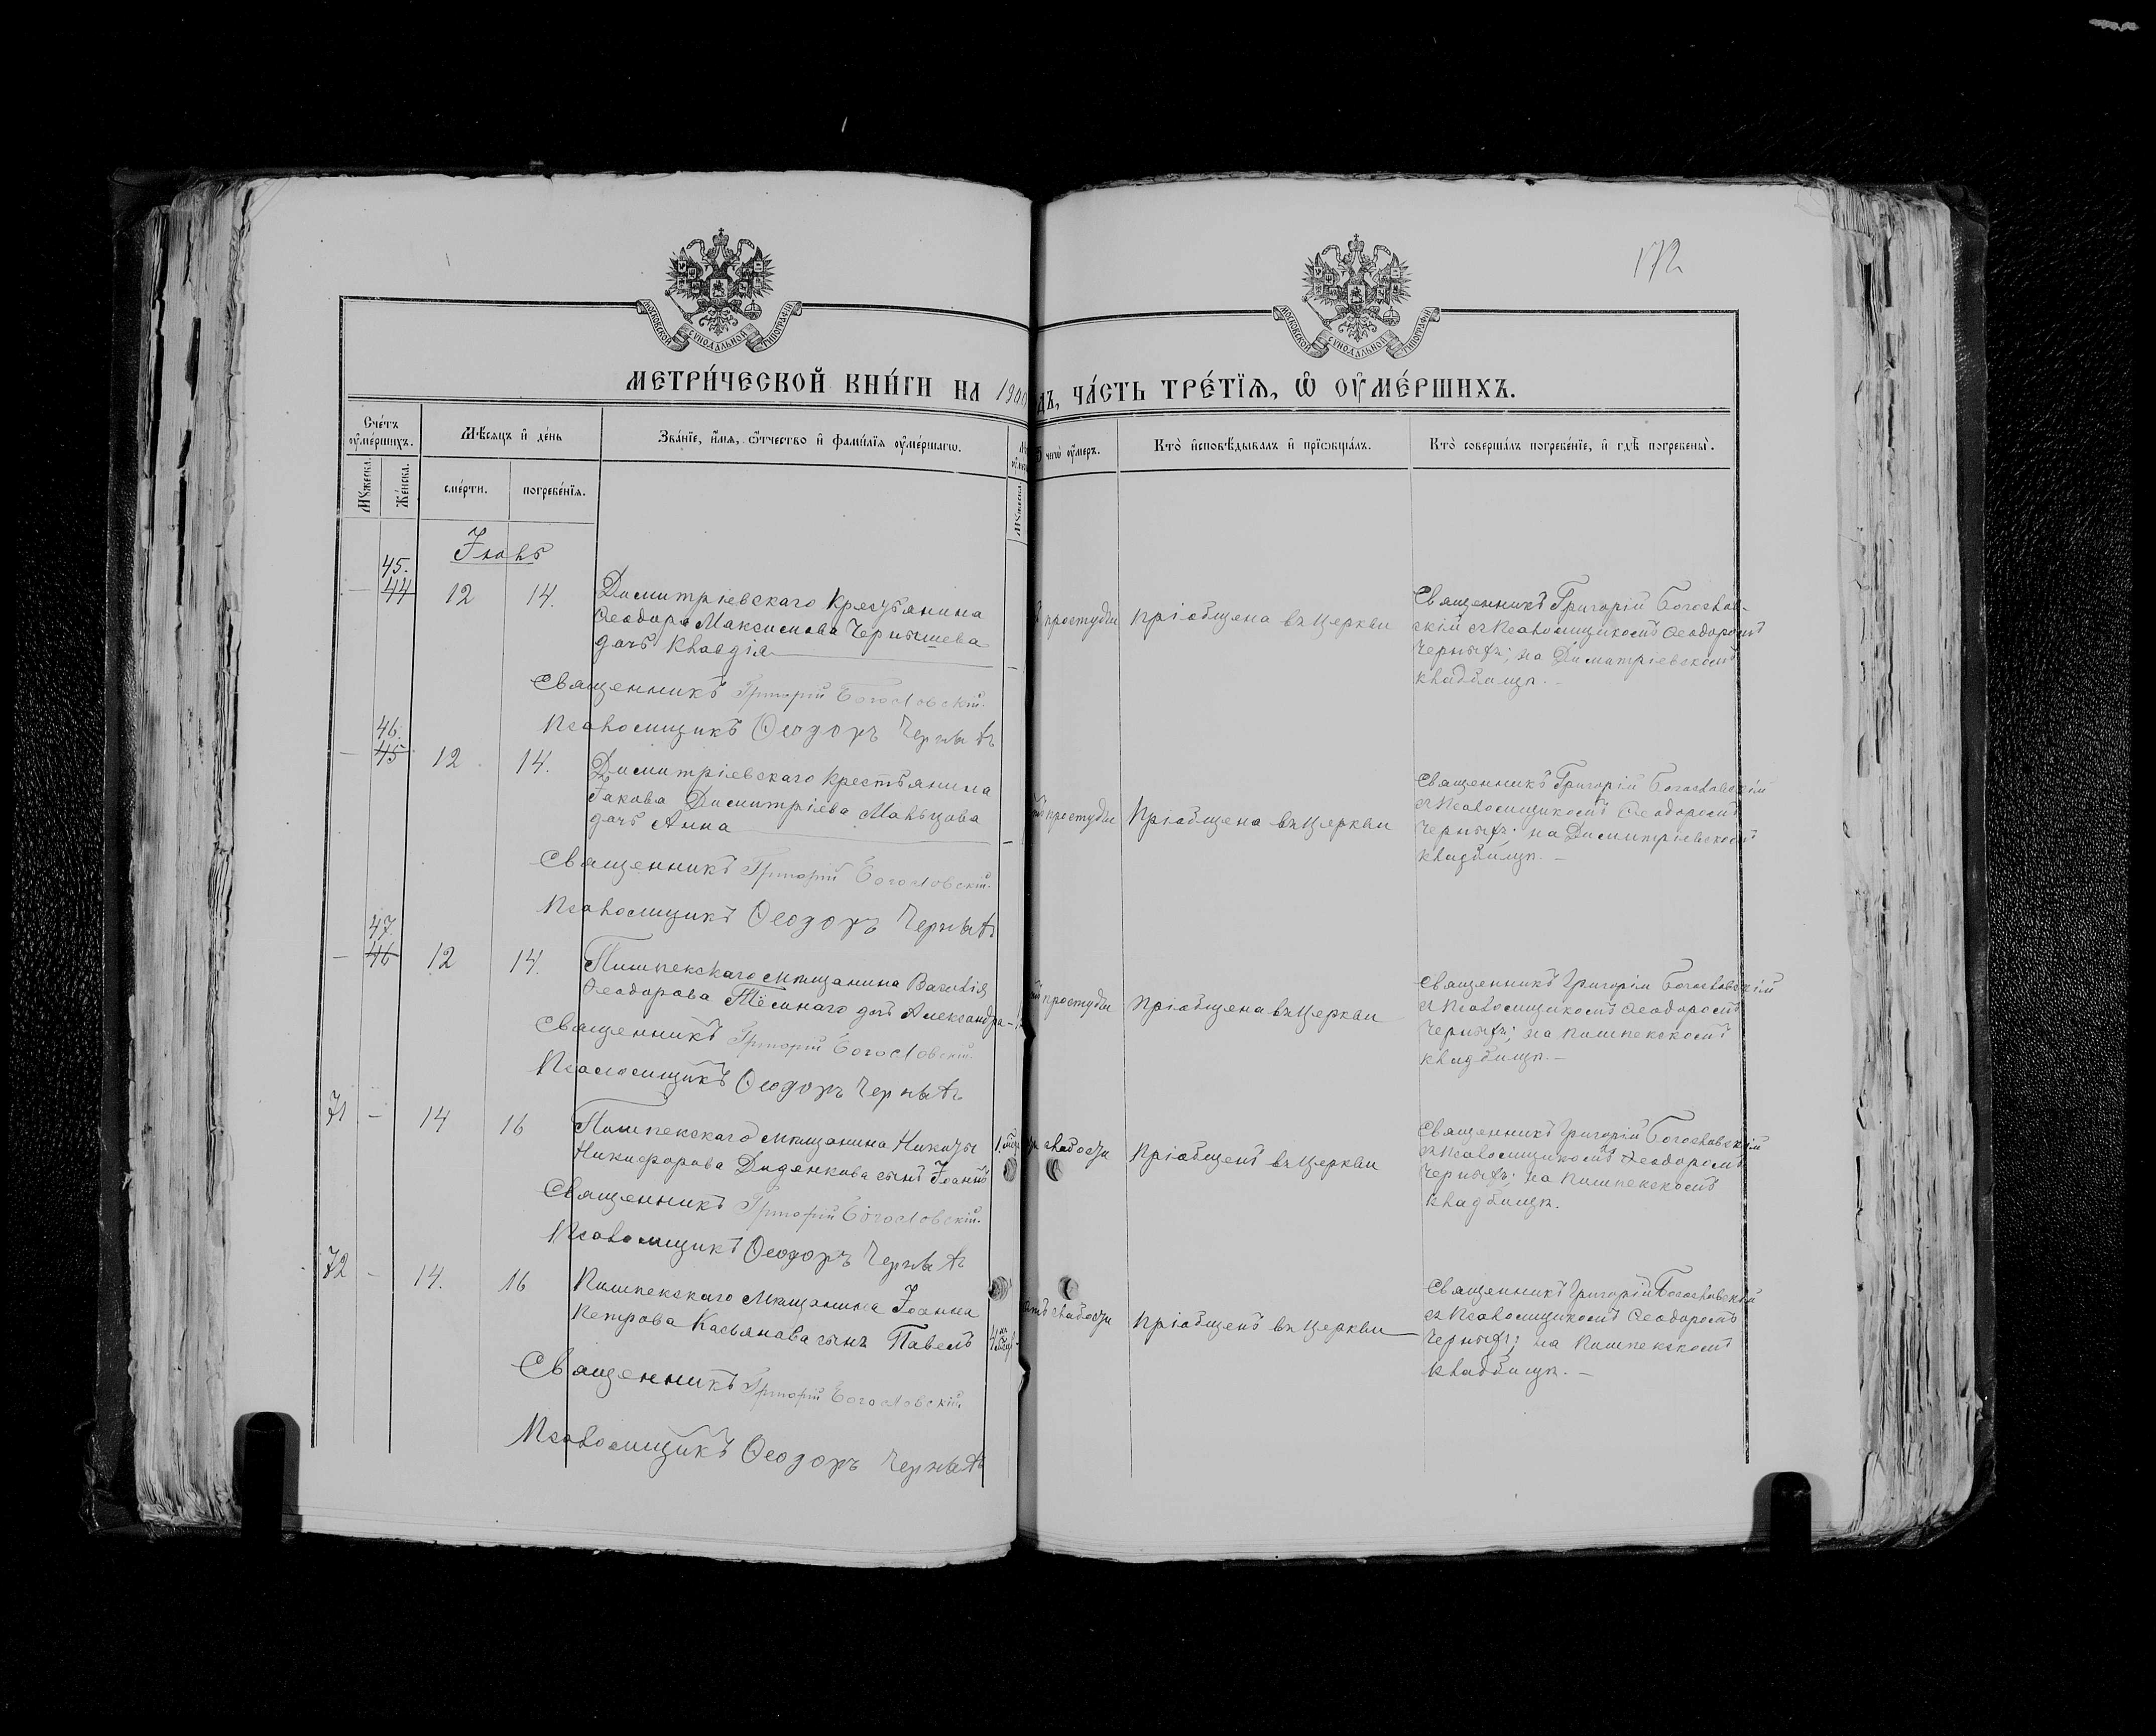 172
МОСКОВСКОЙ СѴНОДАЛЬНОЙ ТИПОГРАФІИ
МОСКОВСКОЙ СѴНОДАЛЬНОЙ ТИПОГРАФІИ
МЕТРИ́ЧЕСКОЙ КНИ́ГИ НА 190 ДЪ, ЧА́СТЬ ТРЕ́ТЇѦ, Ѡ҆ ОУ҆МЕ́РШИХЪ.
Сче́тъ оу҆ме́ршихъ.
Мѣ́сяцъ и҆ де́нь
Зва́нїе, и҆́мя, ѻ҆́тчество и҆ фами́лїя оу҆ме́ршагѡ.
чегѡ̀ оу҆́меръ.
Кто̀ и҆сповѣ́дывалъ и҆ прїѡбща́лъ.
Кто̀ соверша́лъ погребе́нїе, и҆ гдѣ̀ погребены̀.
Мꙋжеска.
Же́нска.
сме́рти.
погребе́нїя.
Мꙋжеска.
Іюль
45.
— 44 12 14. Димитріевскаго крестьянина
Ѳеодора Максимова Чернышева
дочь Клавдія
простуды
пріобщена въ церкви
Священникъ Григорій Богослов-
скій съ Псаломщикомъ Ѳеодоромъ
Черныхъ; на Димитріевскомъ
кладбищѣ. —
Священникъ Григорій Богословскій.
Псаломщикъ Ѳеодоръ Черныхъ
46.
— 45 12. 14. Димитріевскаго крестьянина
Іакова Димитріева Мальцова
дочь Анна
простуды
Пріобщена въ церкви
Священникъ Григорій Богословскій
съ Псаломщикомъ Ѳеодоромъ
Черныхъ; на Димитріевскомъ
кладбищѣ. —
Священникъ Григорій Богословскій.
Псаломщикъ Ѳеодоръ Черныхъ
47.
— 46 12 14. Пишпекскаго мѣщанина Василія
Ѳеодорова Тёмнаго дочь Александра
простуды
Пріобщена въ церкви
Священникъ Григорій Богословскій
съ Псаломщикомъ Ѳеодоромъ
Черныхъ; на Пишпекскомъ
кладбищѣ. —
Священникъ Григорій Богословскій.
Псаломщикъ Ѳеодоръ Черныхъ
71 — 14 16 Пишпекскаго мѣщанина Никиты
Никифорова Диденкова сынъ Іоаннъ
слабости
Пріобщенъ въ церкви
Священникъ Григорій Богословскій
съ Псаломщикомъ Ѳеодоромъ
Черныхъ; на Пишпекскомъ
кладбищѣ.
Священникъ Григорій Богословскій.
Псаломщикъ Ѳеодоръ Черныхъ
72 — 14. 16 Пишпекскаго мѣщанина Іоанна
Петрова Касьянова сынъ Павелъ
отъ слабости
Пріобщенъ въ церкви
Священникъ Григорій Богословскій
съ Псаломщикомъ Ѳеодоромъ
Черныхъ; на Пишпекскомъ
кладбищѣ. —
Священникъ Григорій Богословскій.
Псаломщикъ Ѳеодоръ Черныхъ